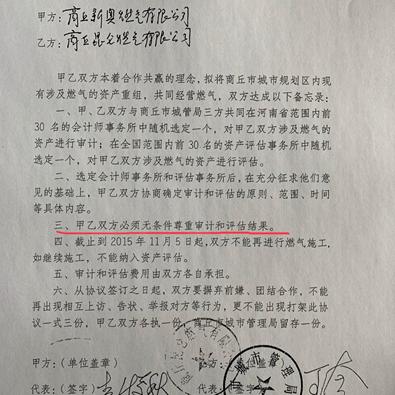 甲方：商丘新奥燃气有限公司
乙方：商丘昆仑燃气有限公司
甲乙双方本着合作共赢的理念，拟将商丘市城市规划区内现
有涉及燃气的资产重组，共同经营燃气，双方达成以下备忘录：
一、甲、乙双方与商丘市城管局三方共同在河南省范围内前
30 名的会计师事务所中随机选定一个，对甲乙双方涉及燃气的
资产进行审计；在全国范围内前 30 名的资产评估事务所中随机
选定一个，对甲乙双方涉及燃气的资产进行评估。
二、选定会计师事务所和评估事务所后，在充分征求他们意
见的基础上，甲乙双方协商确定审计和评估的原则、范围、时间
等具体内容。
三、甲乙双方必须无条件尊重审计和评估结果。
四、截止到 2015 年 11 月 5 日起，双方不能再进行燃气施工，
如继续施工，不能纳入资产评估。
五、审计和评估费用由双方各自承担。
六、从协议签订之日起，双方要摒弃前嫌、团结合作，不能
再出现相互上访、告状、举报对方等行为，更不能出现打架此协
议一式三份，甲乙双方各执一份，商丘市城市管理局留存一份。
甲方：（单位盖章）
代表：（签字）
代表：（签字）
城市管理局